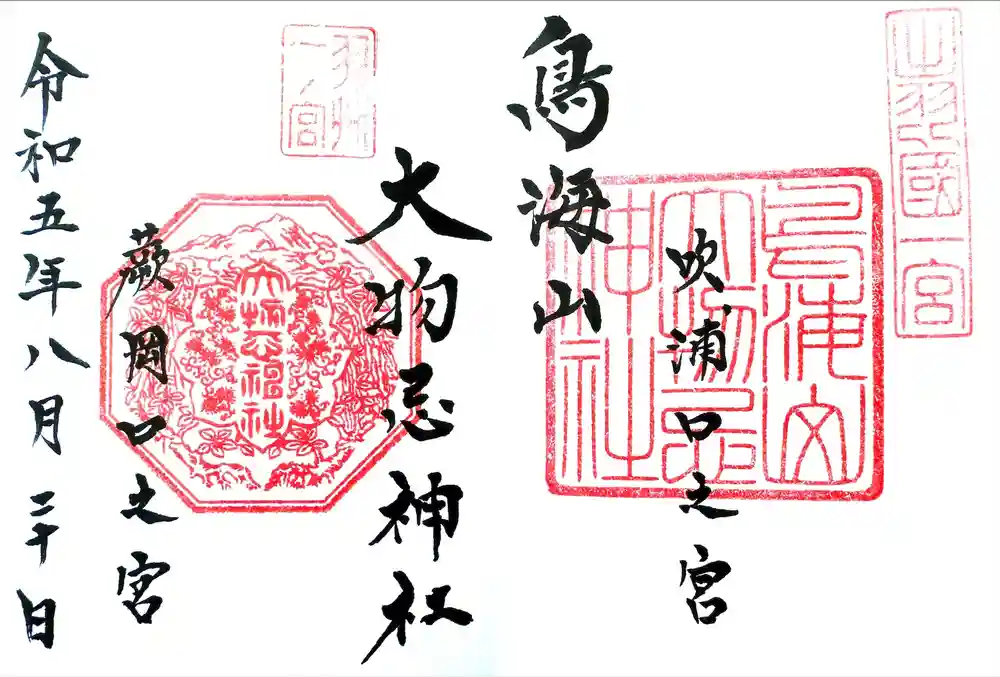 出羽國一宮
鳥海山
大物忌
神社
吹浦口之宮
鳥海山
大物忌神社
羽州
一ノ宮
大物忌神社
蕨岡口之宮
令和五年八月二十日